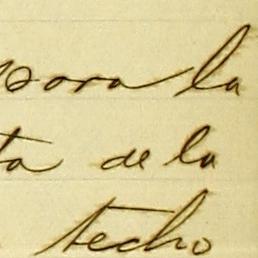 para la
ta de la
techo